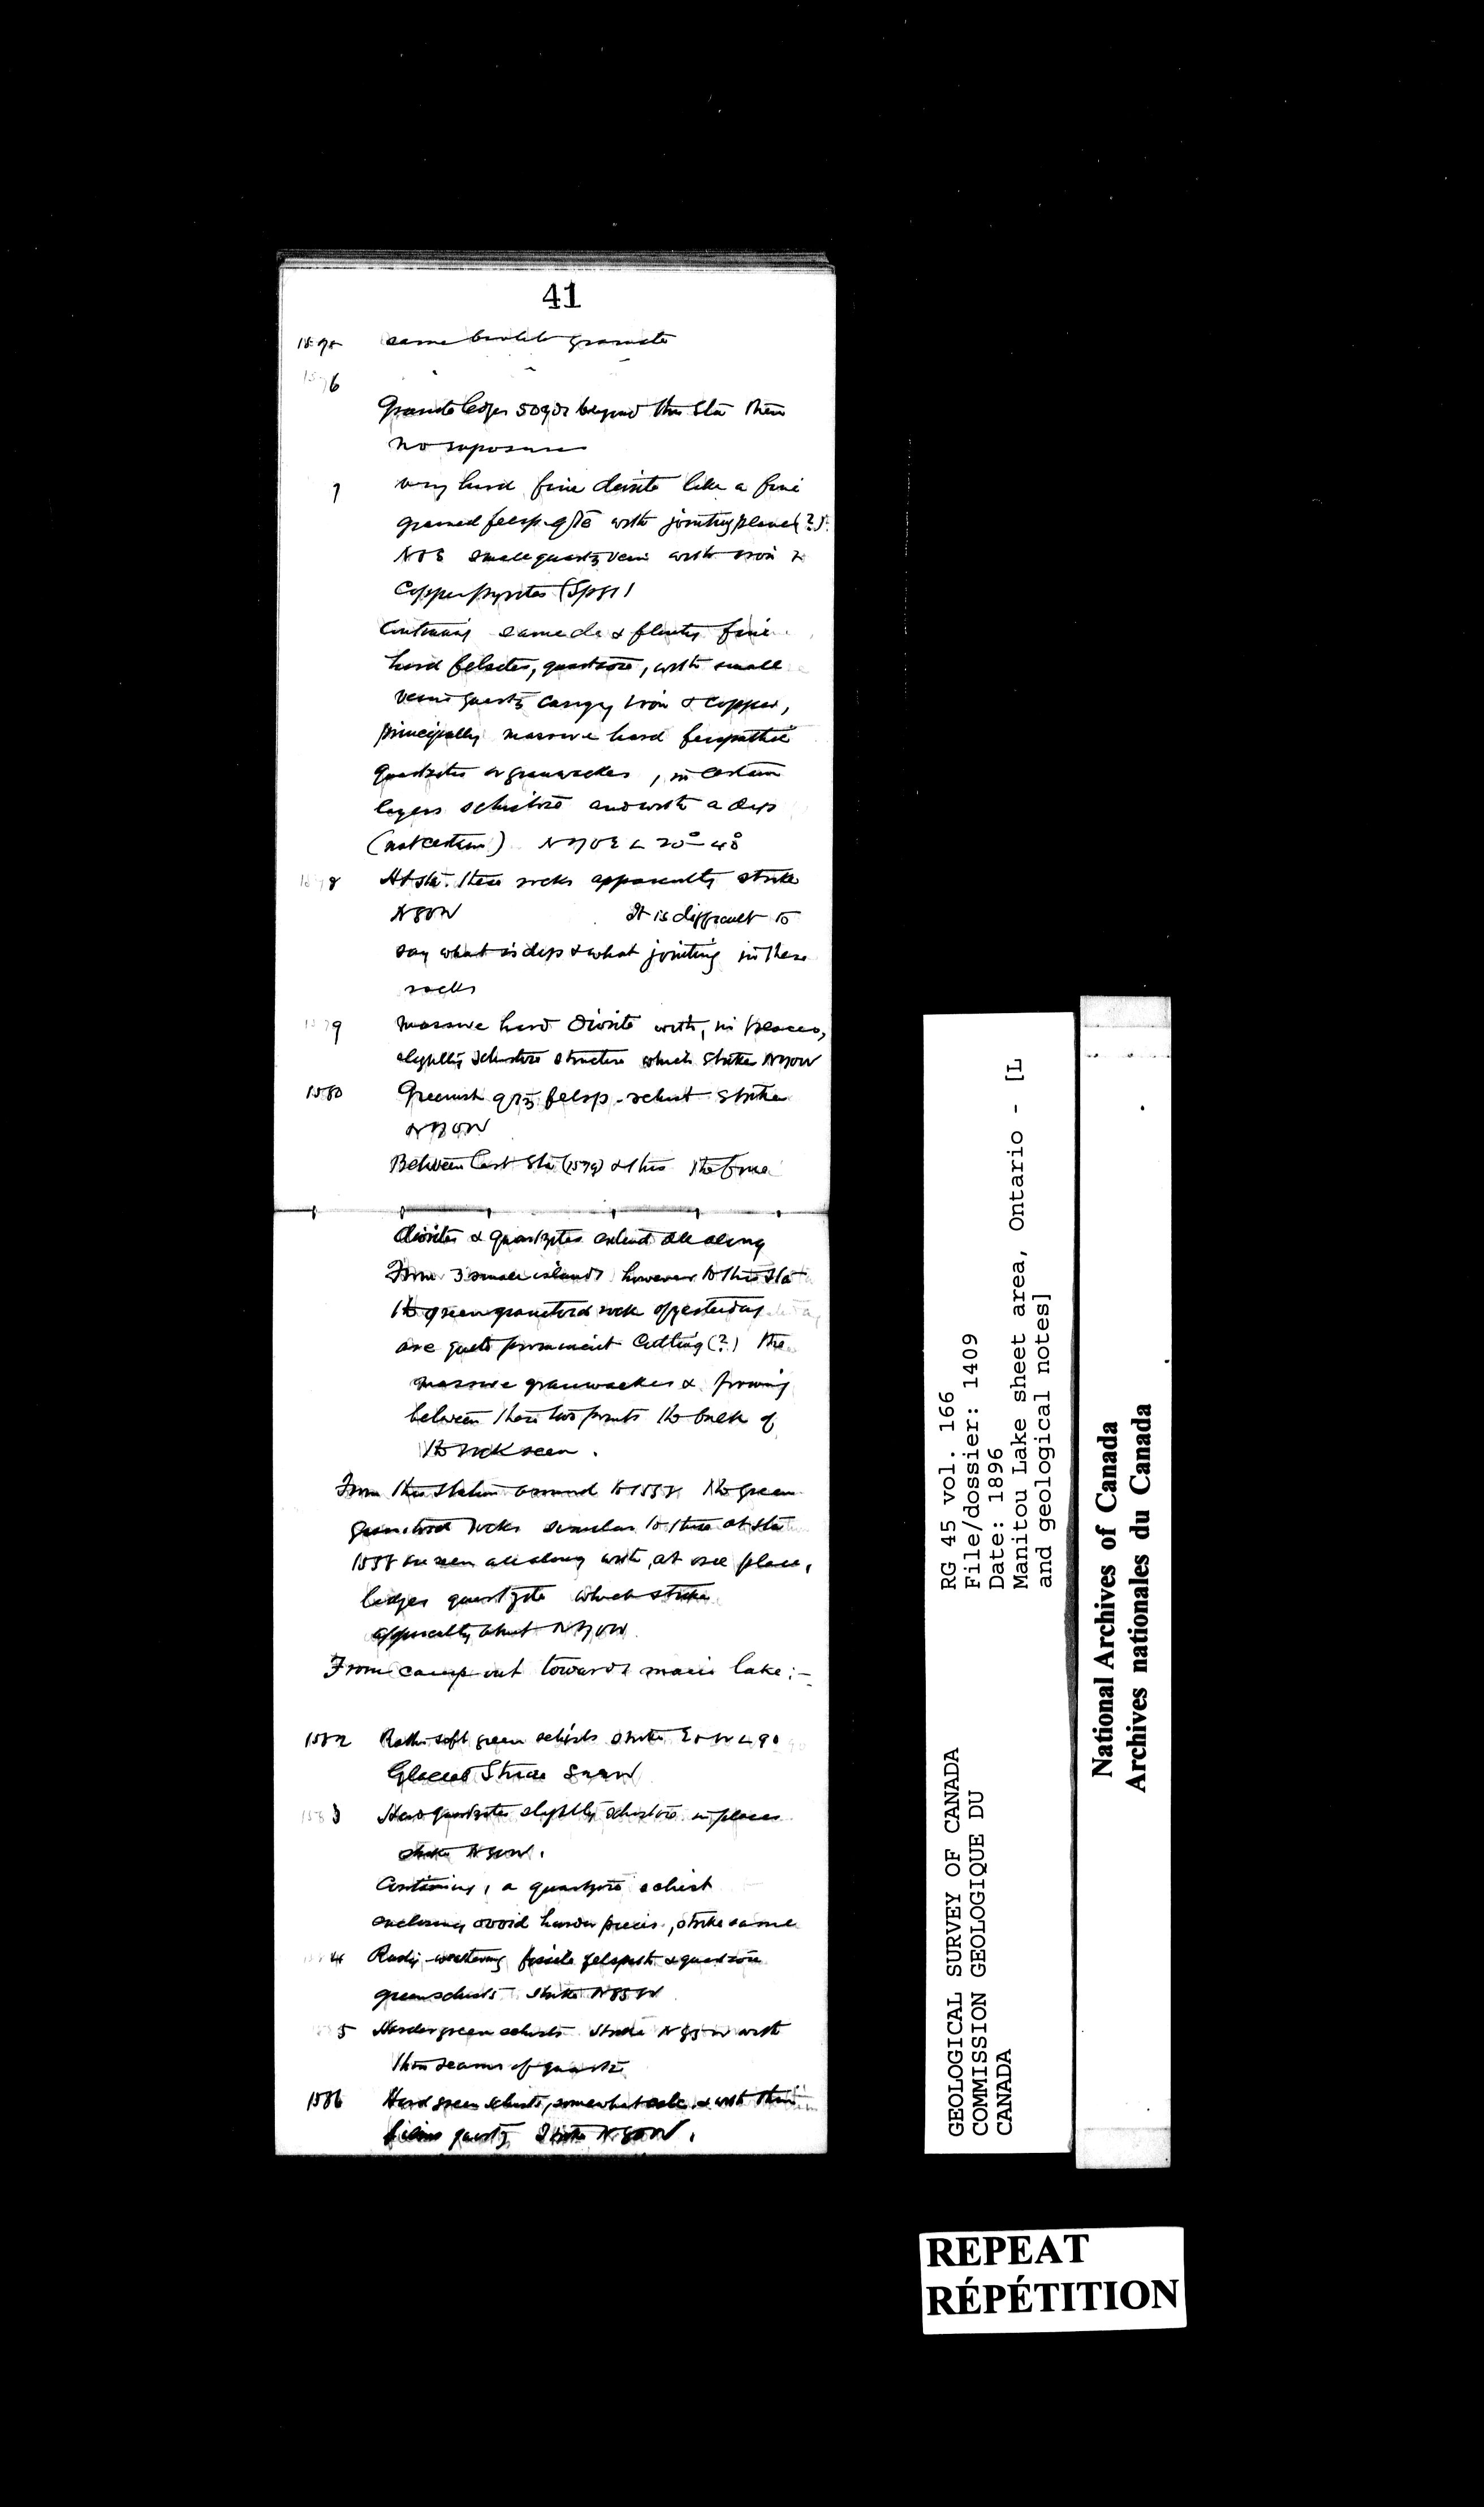 41
same biotite granite
6
Granite ledges 50 yds beyond this Sta then
no exposures
7 very hard fine diorite like a fine
grained felsp. qtē with jointing planes (?)
small quartz vein with iron &
Copper pyrites (Sp 81)
Continuing same do & flinty fine
hard felsites, quartzose, with small
veins quartz carryg iron & copper,
principally massive hard felspathic
quartzites or grauwackes, in certain
layers schistose and with a dip
(not certain) N70E L 20° - 40°
8 At sta. these rocks apparently strike
N80W It is difficult to
say what is dip & what jointing in these
rocks
1579 massive hard diorite with, in places,
slightly schistose structure which strikes N70W
1580 Greenish qtz felsp. schist strike
N70W
Between last Sta (1579) & this the fine
diorites & quartzytes extend all along
From 3 small islands however to this Sta
the green granitoid rock of yesterday
are quite prominent cutting (?) the
massive grauwackes & forming
between these two points the bulk of
the rock seen.
From this station around to the green
granitoid rocks similar to those at sta
are seen all along with, at one place,
ledges quartzyte which strike
apparently about N70W
From camp out towards main lake:-
1582 Rather soft green schists strike E & W L 90
Glacial Striae
1583 Hard quartzites slightly schistose in places
strike N80W.
Continuing, a quartzose schist
enclosing ovoid harder pieces, strike same
1584 Rusty weathering fissile felspath. & quartzose
green schists strike N85W
5 Harder green schists strike N85W with
thin seams of quartz
1586 Hard green schists, somewhat calc. & with thin
films quartz Strike N80W.
RG 45 vol. 166
File/dossier: 1409
Date: 1896
Manitou Lake sheet area, Ontario - [L
and geological notes]
GEOLOGICAL SURVEY OF CANADA
COMMISSION GEOLOGIQUE DU
CANADA
National Archives of Canada
Archives nationales du Canada
REPEAT
RÉPÉTITION